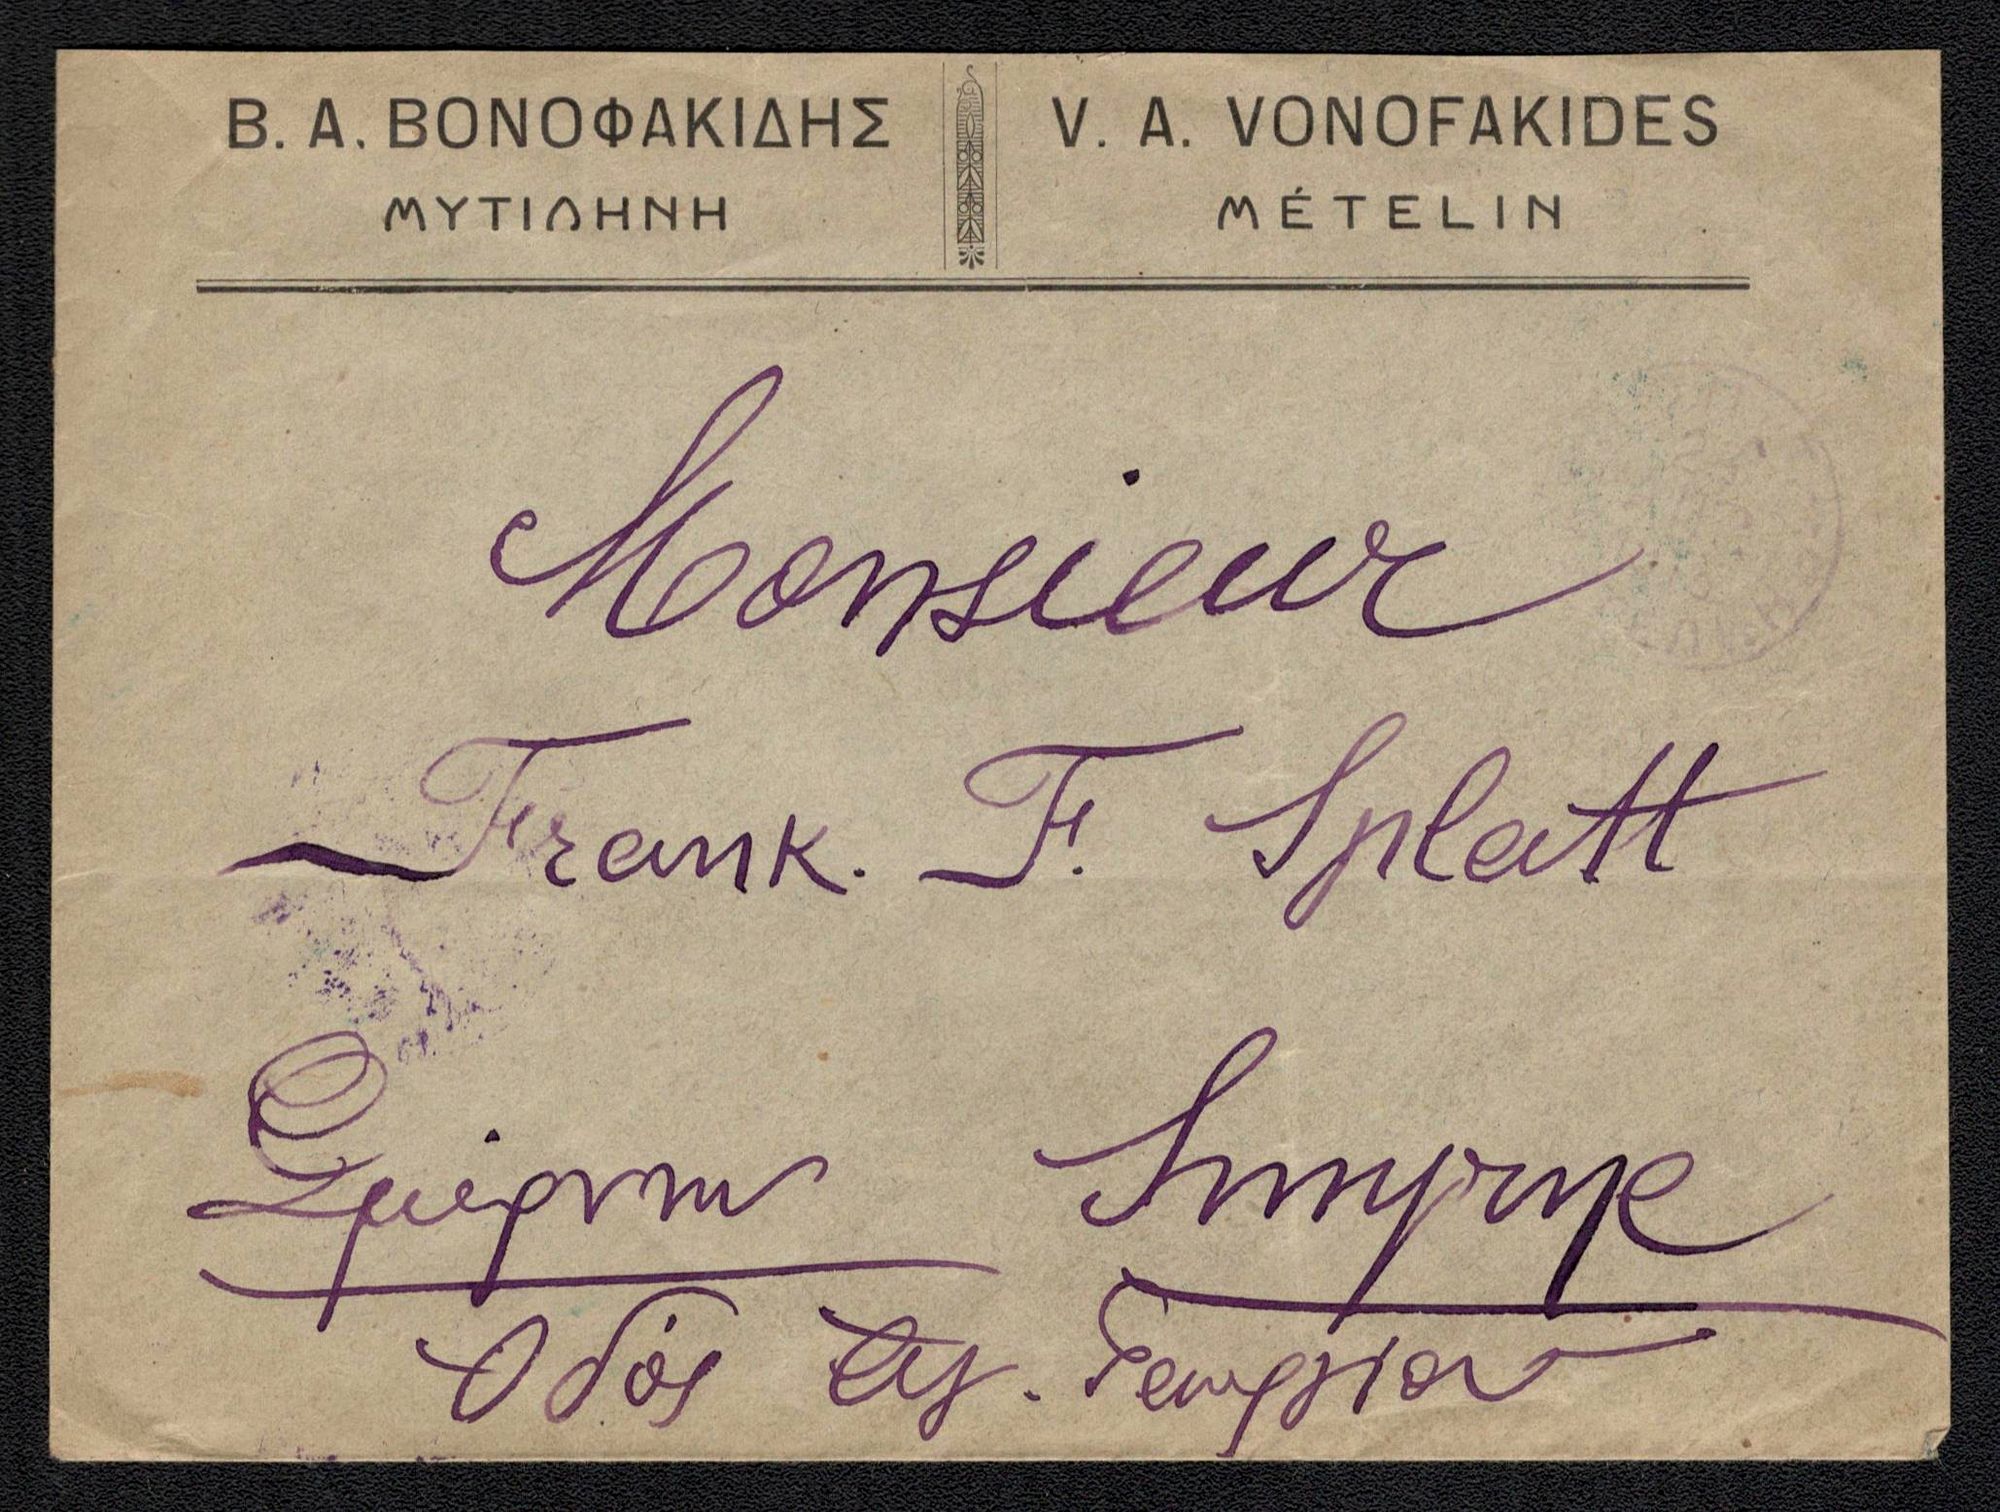 Β. Α. ΒΟΝΟΦΑΚΙΔΗΣ
ΜΥΤΙΛΗΝΗ
V. A. VONOFAKIDES
MÉTELIN
Monsieur
Frank. F. Splatt
Σμύρνην
Smyrne
Οδός Αγ. Γεωργίου